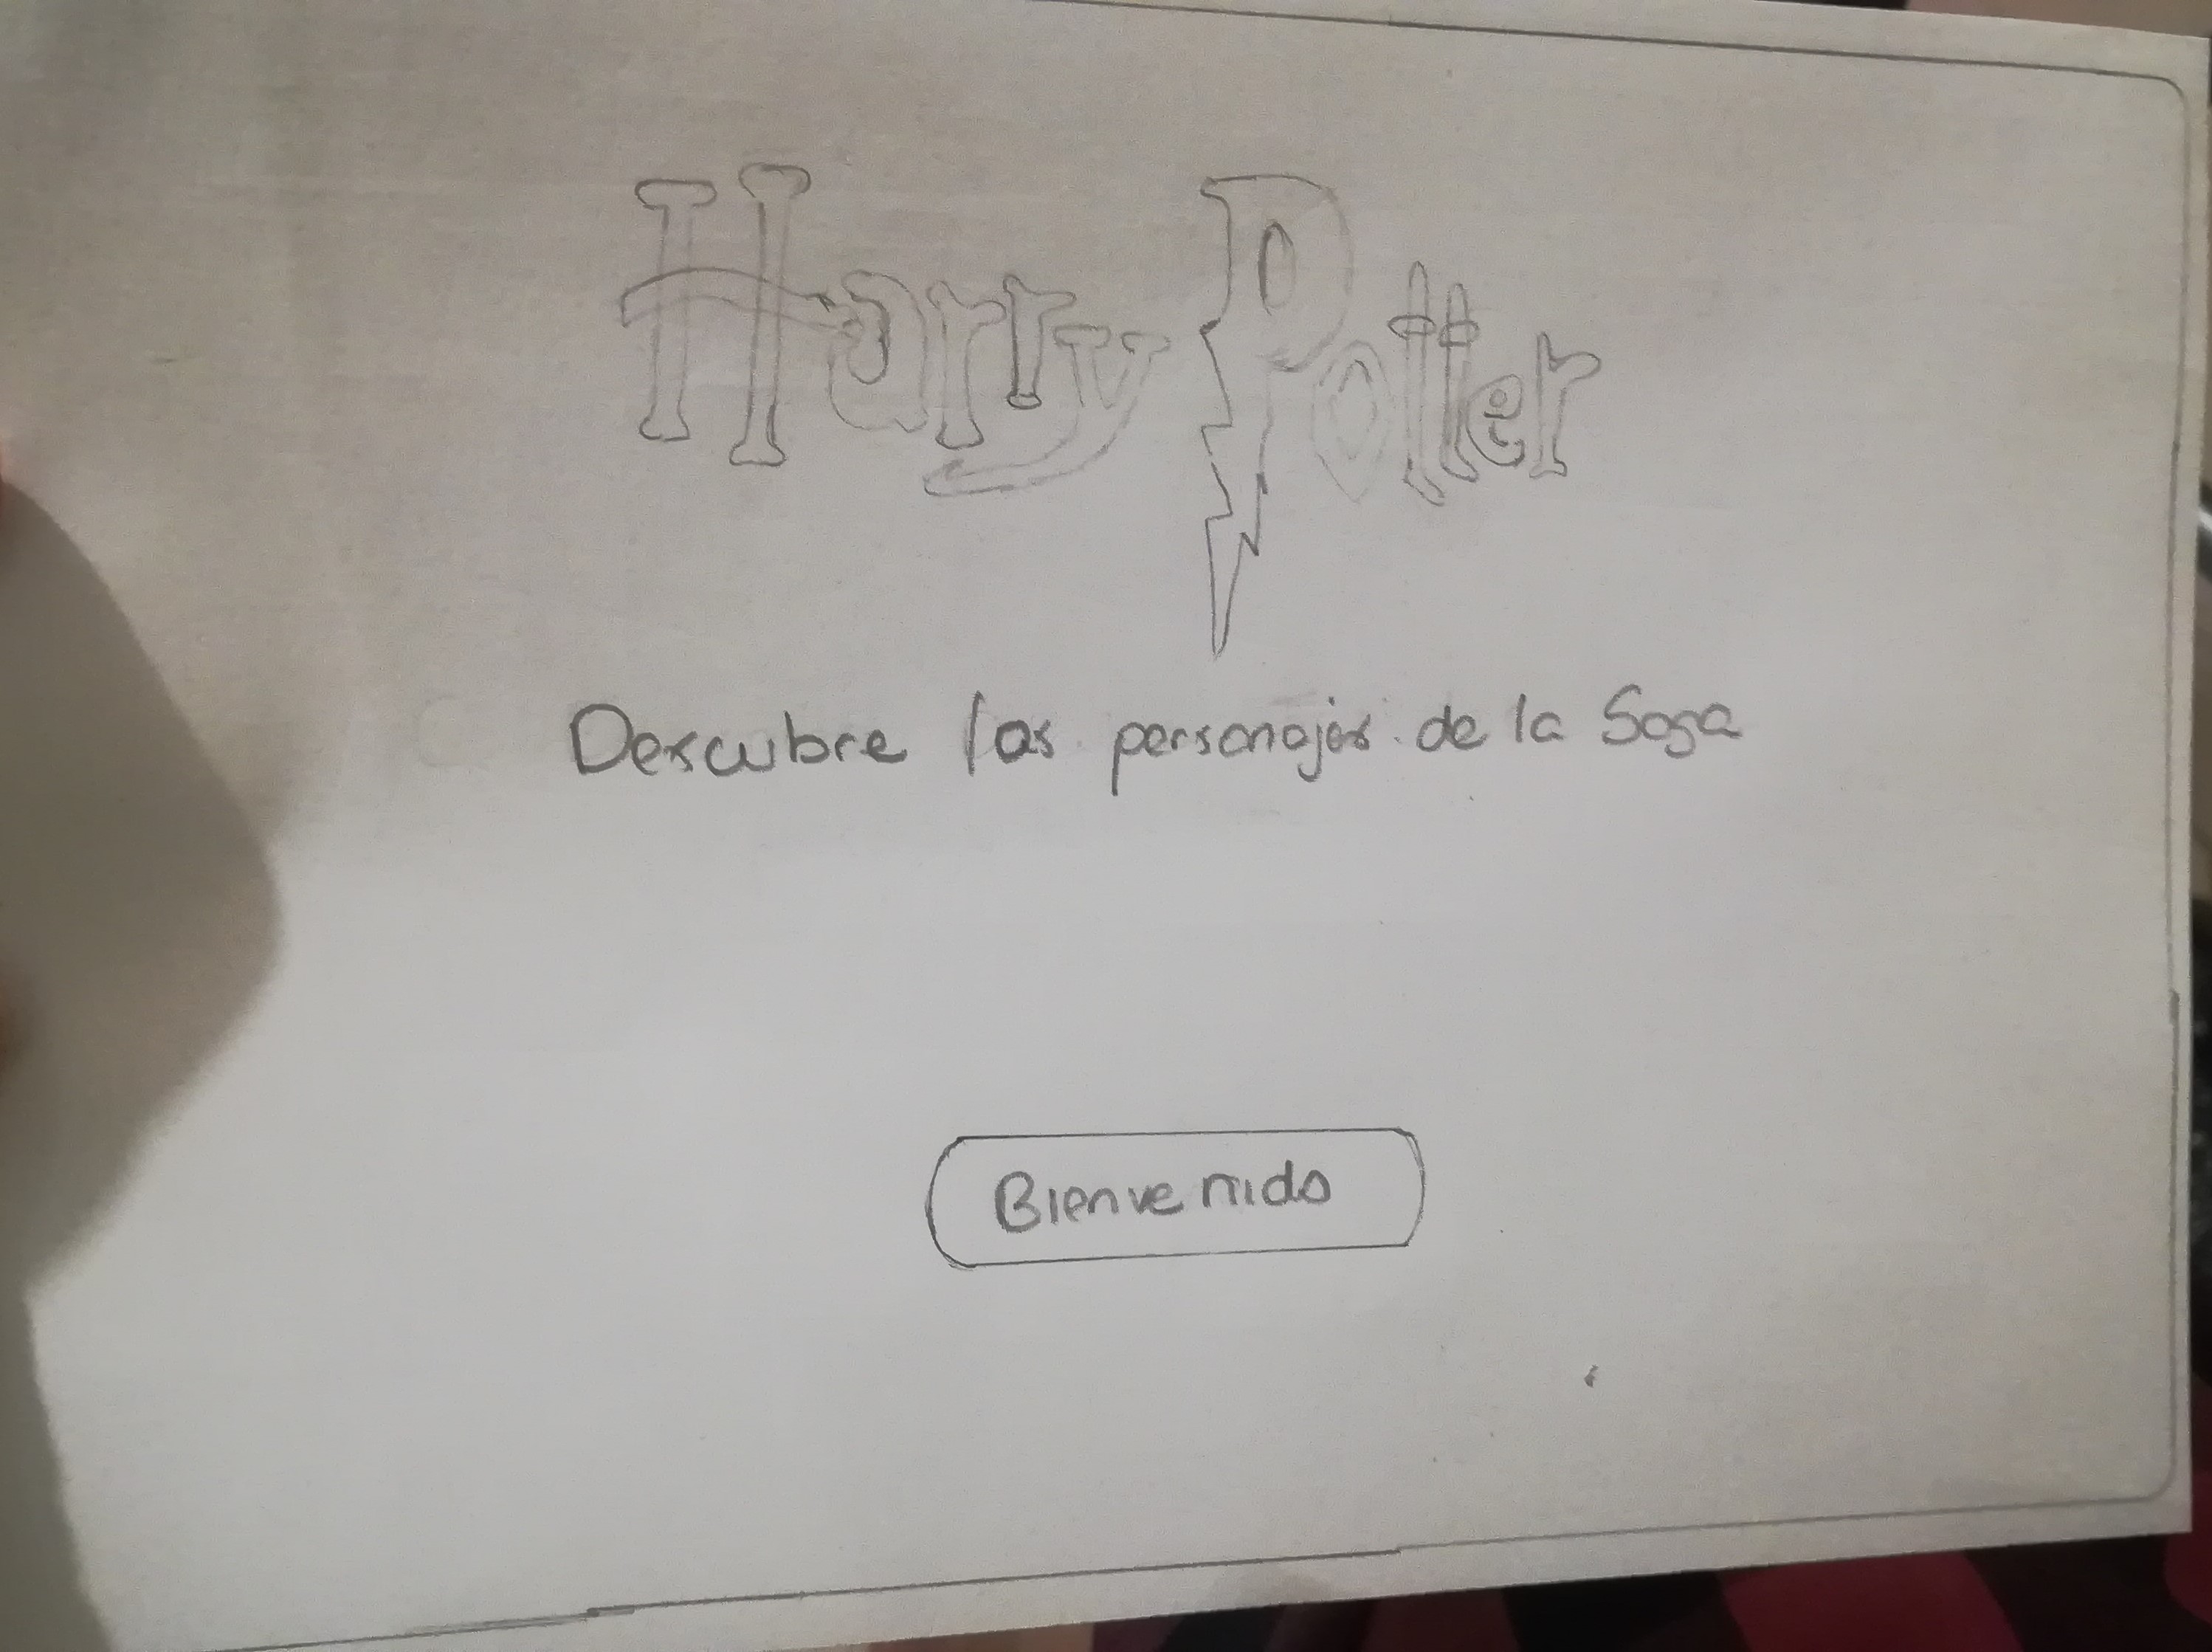 Harry Potter
Descubre los personajes de la Saga
Bienvenido